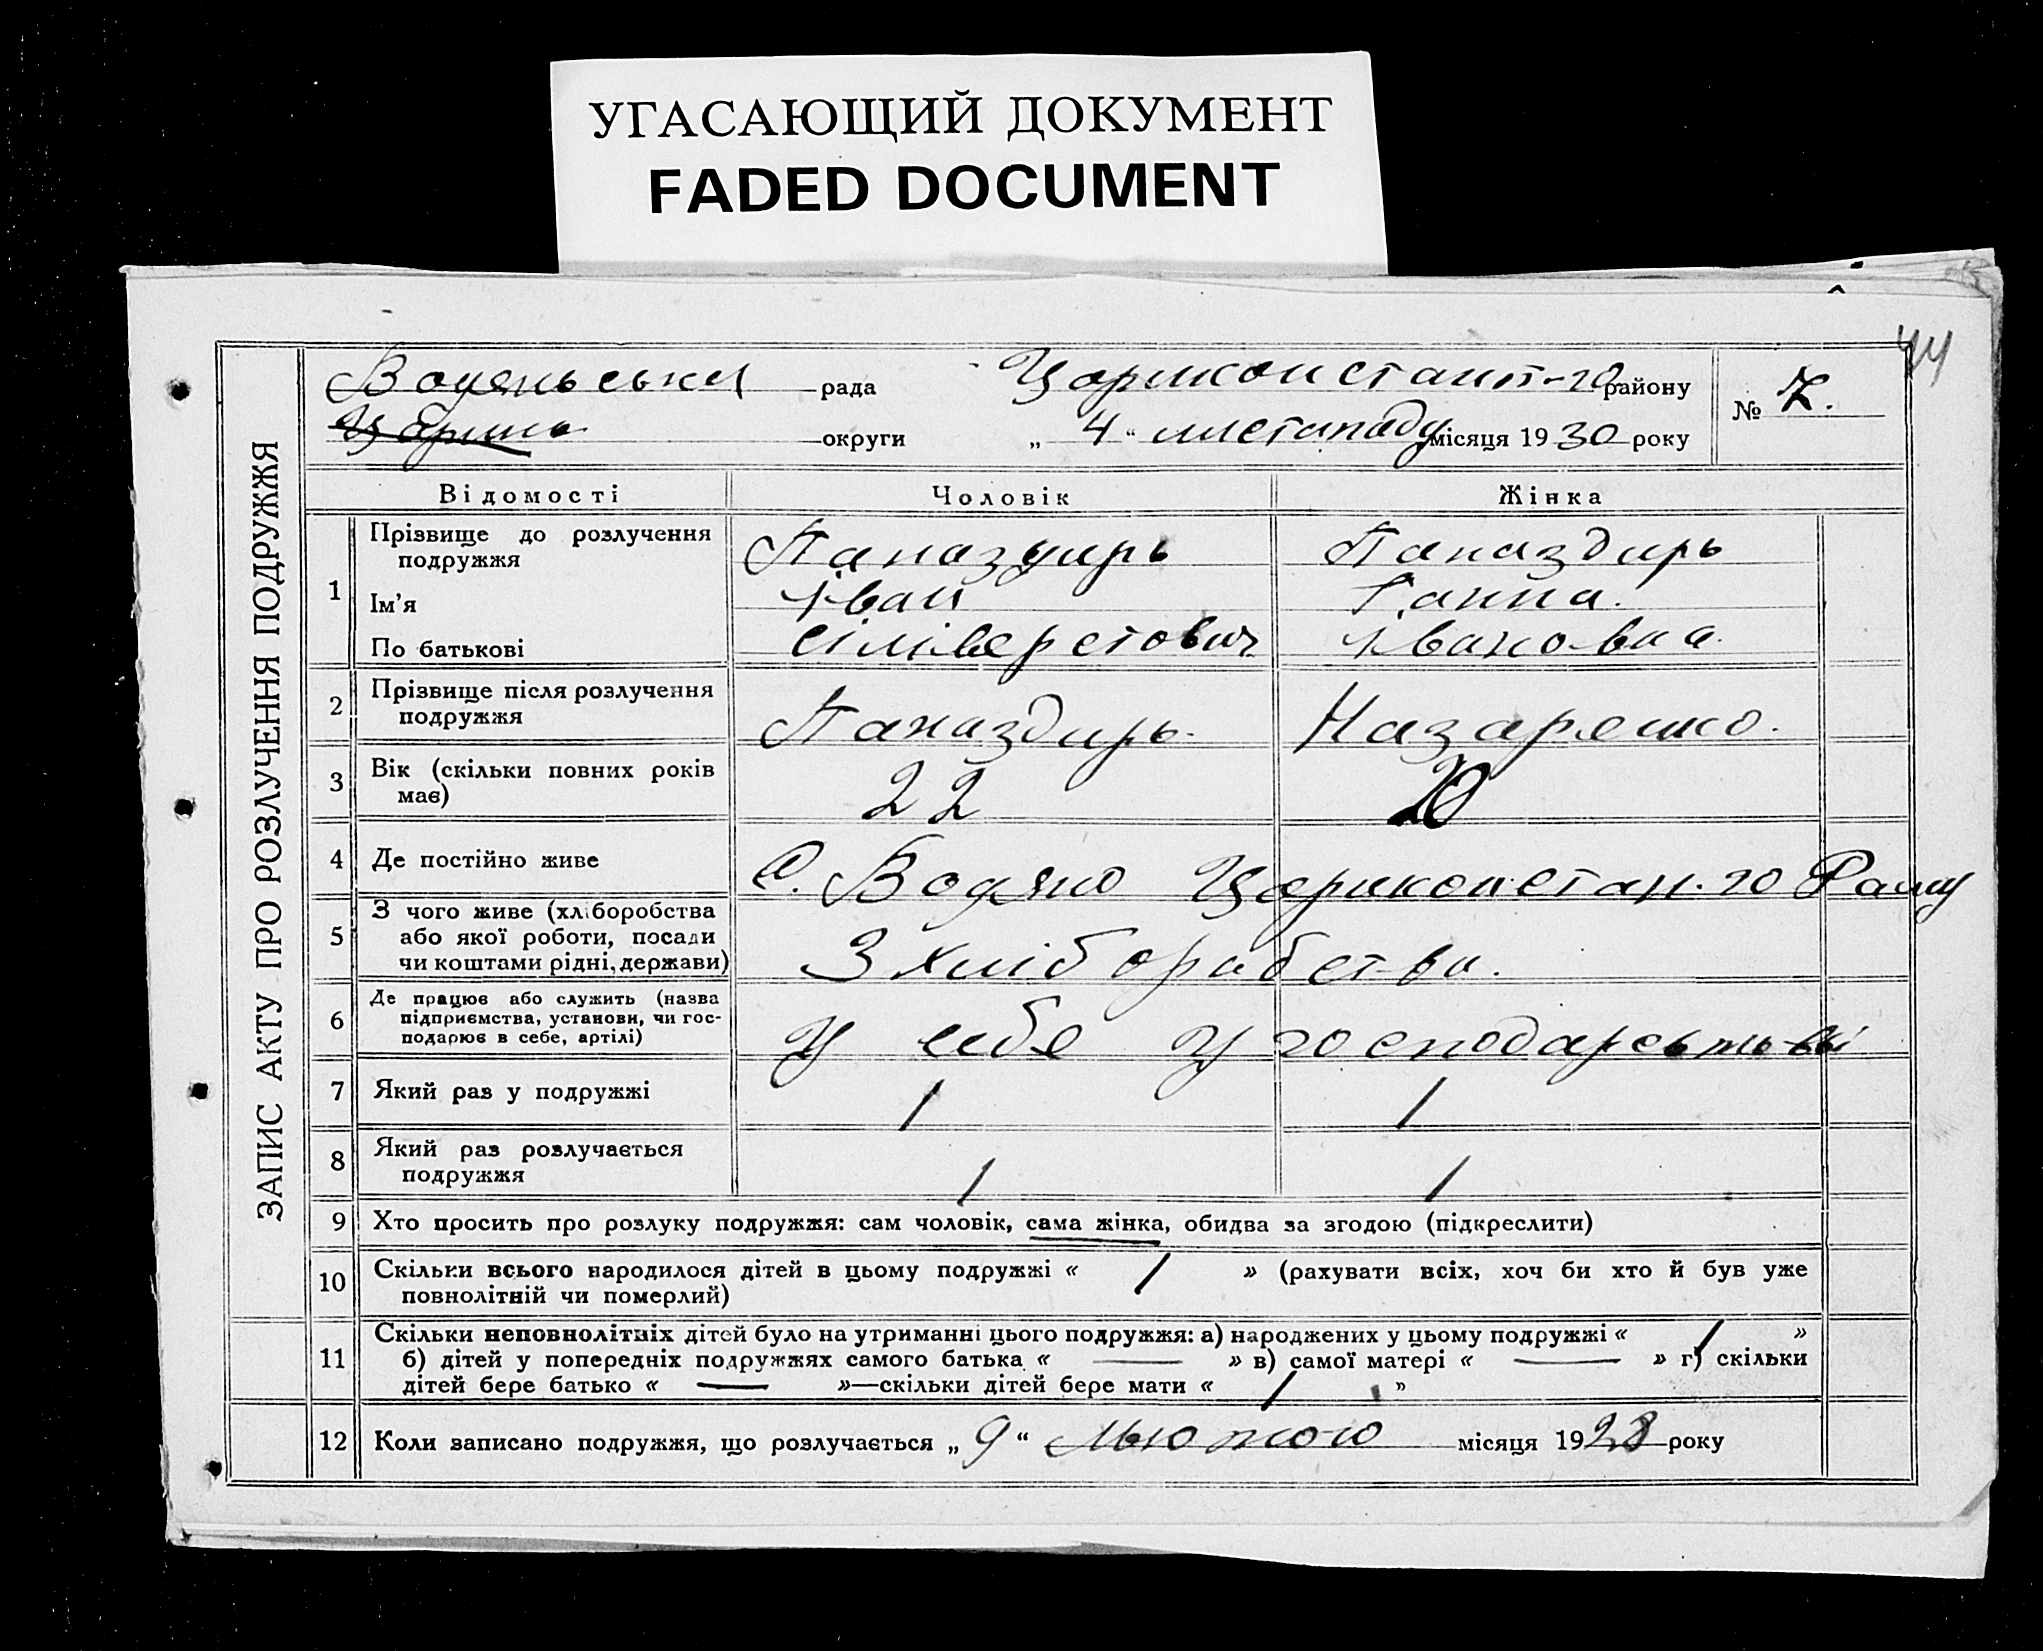 УГАСАЮЩИЙ ДОКУМЕНТ
FADED DOCUMENT
44
ЗАПИС АКТУ ПРО РОЗЛУЧЕННЯ ПОДРУЖЖЯ
Водяньськи рада Царикостант-го району № 7.
Царико округи „ 4 “ листападу місяця 19 30 року
Відомості Чоловік Жінка
1 Прізвище до розлучення подружжя Паназдирь Паназдирь
Ім'я Іван Ганна.
По батькові Сіліверстович Івановна.
2 Прізвище після розлучення подружжя Паназдирь. Назаренко.
3 Вік (скільки повних років має) 22 20
4 Де постійно живе С. Водяно Царикопстан.го Раину
5 З чого живе (хліборобства або якої роботи, посади чи коштами рідні, держави) З хліборабства.
6 Де працює або служить (назва підприємства, установи, чи господарює в себе, артілі) У себе у господарстьві
7 Який раз у подружжі 1 1
8 Який раз розлучається подружжя 1 1
9 Хто просить про розлуку подружжя: сам чоловік, сама жінка, обидва за згодою (підкреслити)
10 Скільки всього народилося дітей в цьому подружжі « 1 » (рахувати всіх, хоч би хто й був уже
повнолітній чи померлий)
11 Скільки неповнолітніх дітей було на утриманні цього подружжя: а) народжених у цьому подружжі « 1 »
б) дітей у попередніх подружжях самого батька « — » в) самої матері « — » г) скільки
дітей бере батько « — »—скільки дітей бере мати « 1 »
12 Коли записано подружжя, що розлучається „ 9 “ Лютого місяця 19 28 року